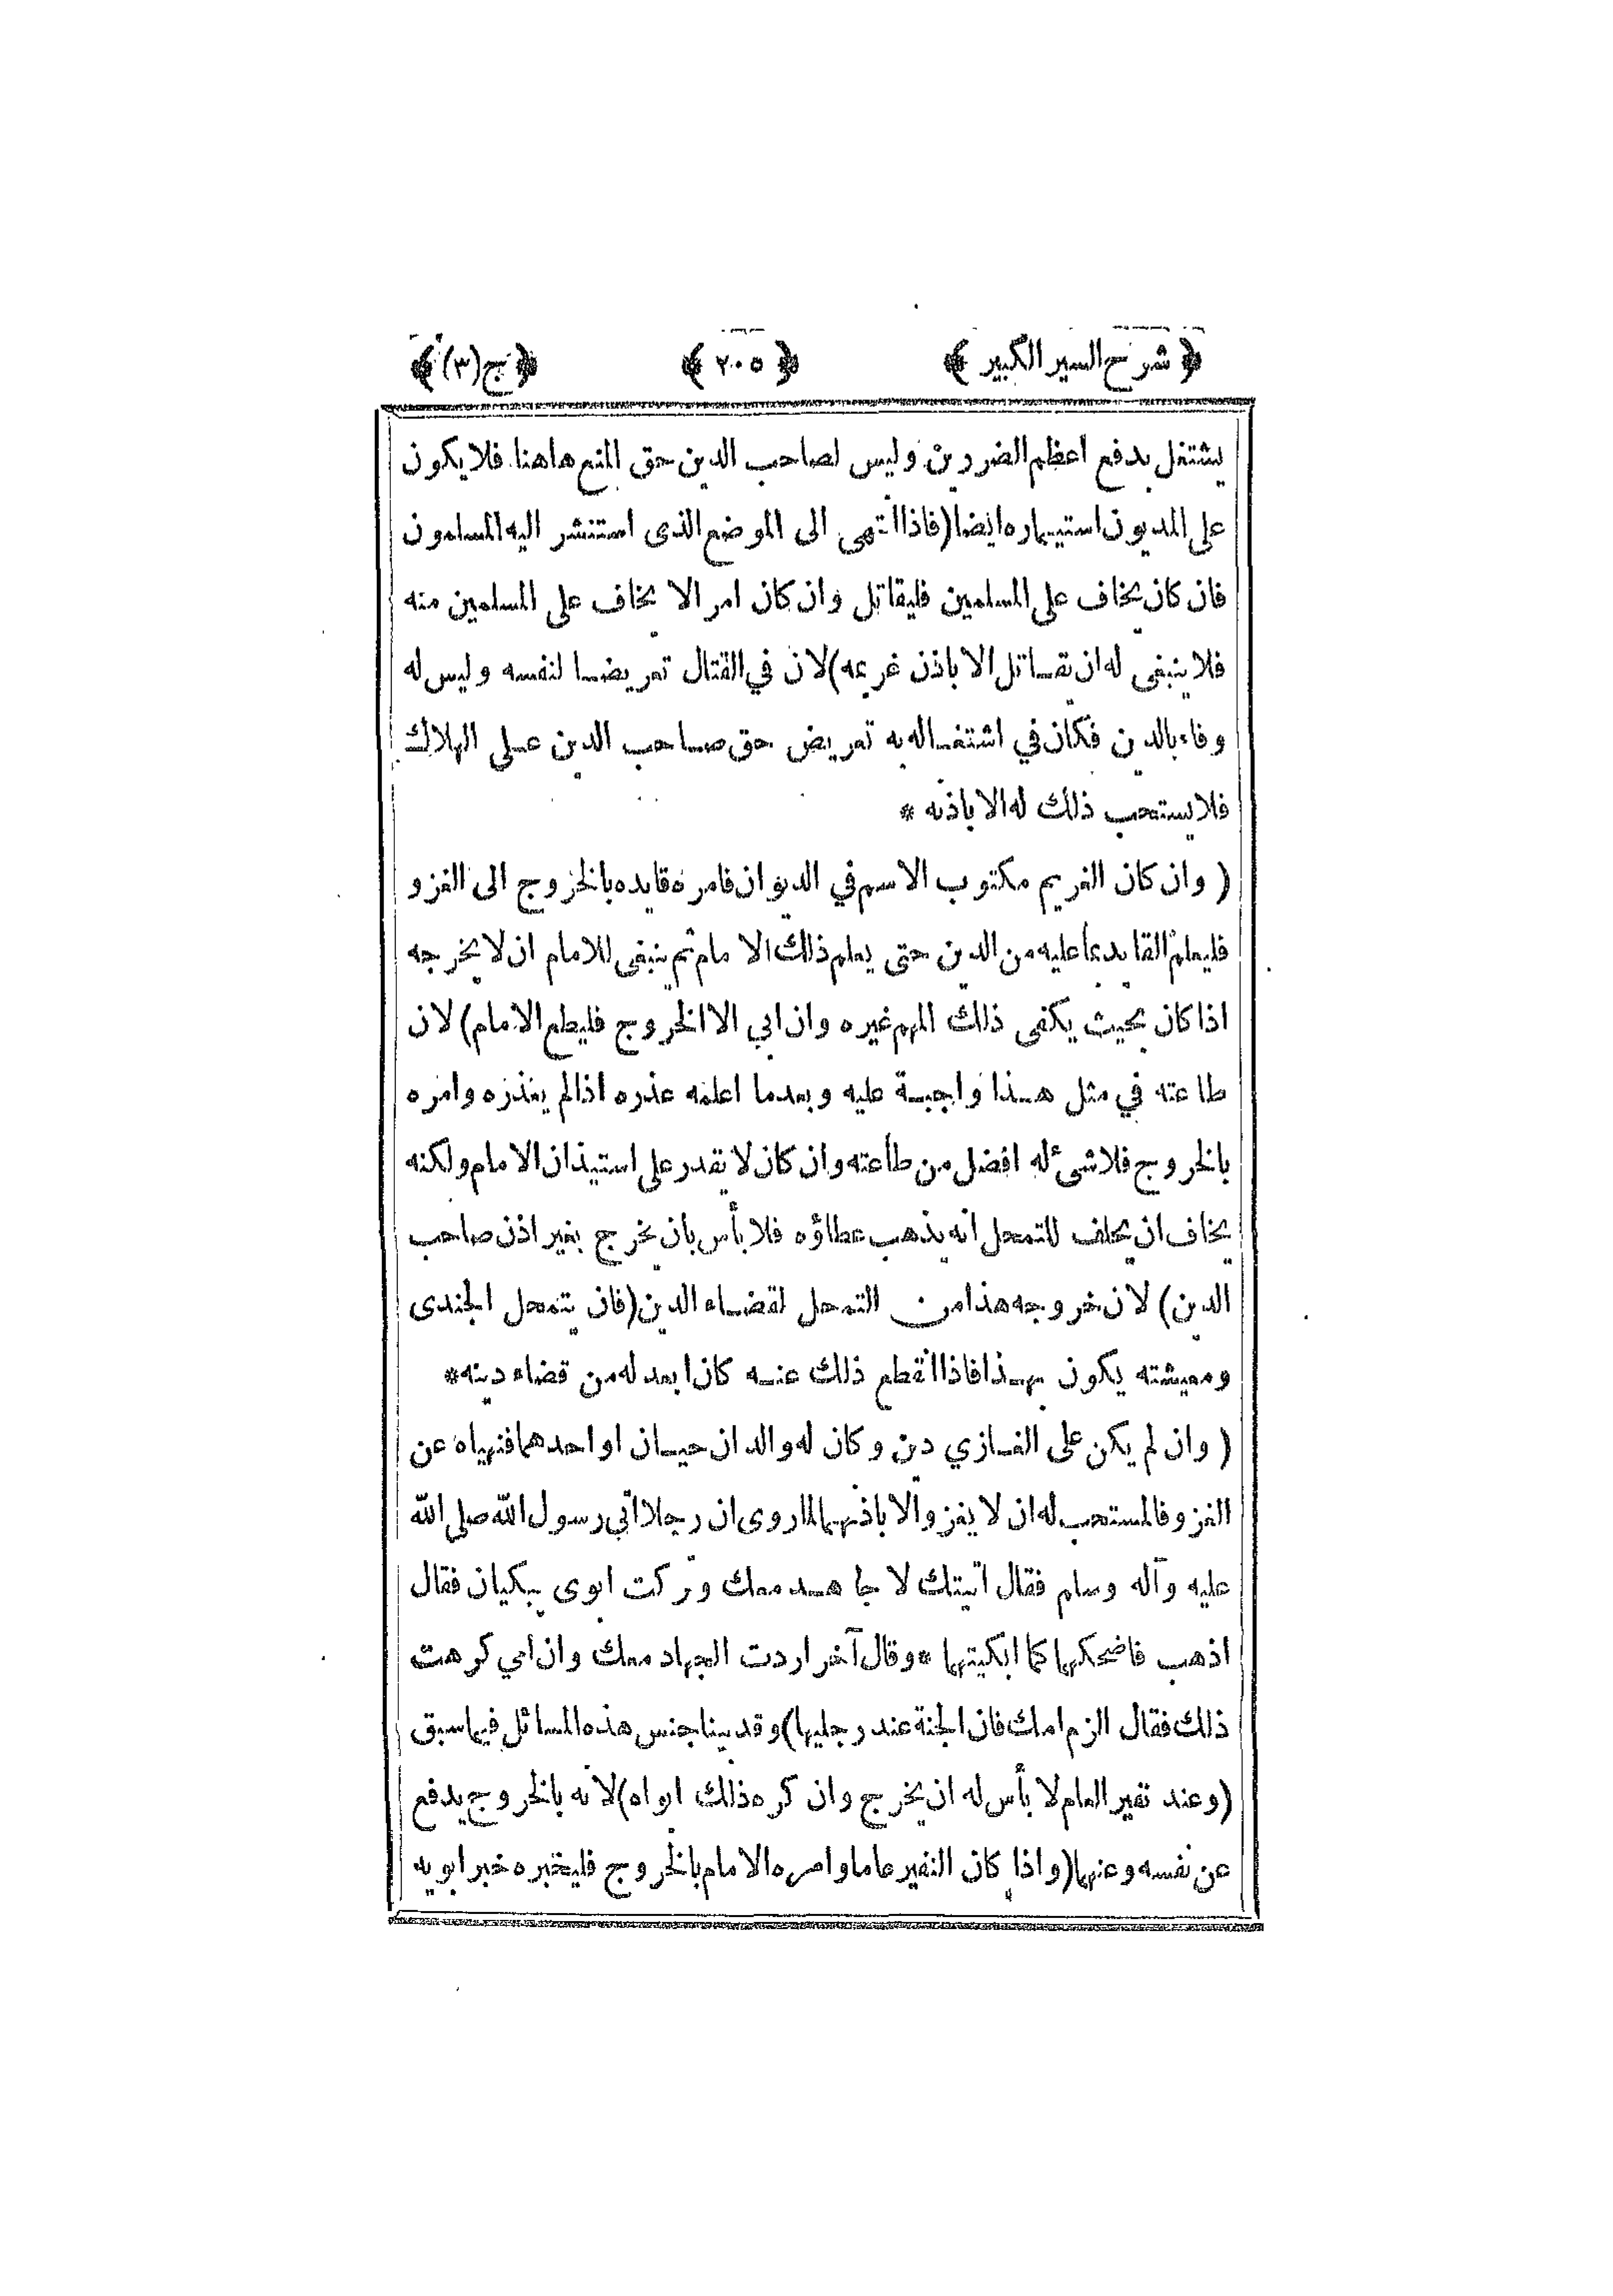 ﴿ شرح السير الكبير ﴾ ﴿ ٢٠٥ ﴾ ﴿ ج (٣) ﴾
يشتغل بدفع اعظم الضررين وليس لصاحب الدين حق المنع هاهنا فلا يكون
على المديون استيماره ايضا (فاذا انتهى الى الموضع الذى استنشر اليه المسلمون
فان كان يخاف على المسلمين فليقاتل وان كان امر الا يخاف على المسلمين منه
فلا ينبغى له ان يقاتل الا باذن غريمه) لان في القتال تعريضا لنفسه وليس له
وفاء بالدين فكان في اشتغاله به تعريض حق صاحب الدين على الهلاك
فلا يستحب ذلك له الا باذنه *
( وان كان الغريم مكتوب الاسم في الديوان فامره قايده بالخروج الى الغزو
فليعلم القايد بما عليه من الدين حتى يعلم ذلك الامام ثم ينبغى للامام ان لا يخرجه
اذا كان بحيث يكفى ذلك المهم غيره وان ابي الا الخروج فليطع الامام) لان
طاعته في مثل هذا واجبة عليه وبعدما اعلمه عذره اذا لم يعذره وامره
بالخروج فلا شئ له افضل من طاعته وان كان لا يقدر على استيذان الامام ولكنه
يخاف ان يخلف للتمحل انه يذهب عطاؤه فلا بأس بان يخرج بغير اذن صاحب
الدين) لان خروجه هذا من التمحل لقضاء الدين (فان يتمحل الجندى
ومعيشته يكون بهذا فاذا انقطع ذلك عنه كان ابعد له من قضاء دينه *
( وان لم يكن على الغازي دين وكان له والدان حيان او احدهما فنهياه عن
الغزو فالمستحب له ان لا يغزو الا باذنهما لما روى ان رجلا اتى رسول الله صلى الله
عليه وآله وسلم فقال اتيتك لاجاهد معك وتركت ابوى يبكيان فقال
اذهب فاضحكهما كما ابكيتهما * وقال آخر اردت الجهاد معك وان امي كرهت
ذلك فقال الزم امك فان الجنة عند رجليها) وقد بينا جنس هذه المسائل فيما سبق
(وعند نفير العام لا بأس له ان يخرج وان كره ذلك ابواه) لانه بالخروج يدفع
عن نفسه وعنهما (واذا كان النفير عاما وامره الامام بالخروج فليخبره خبر ابويه